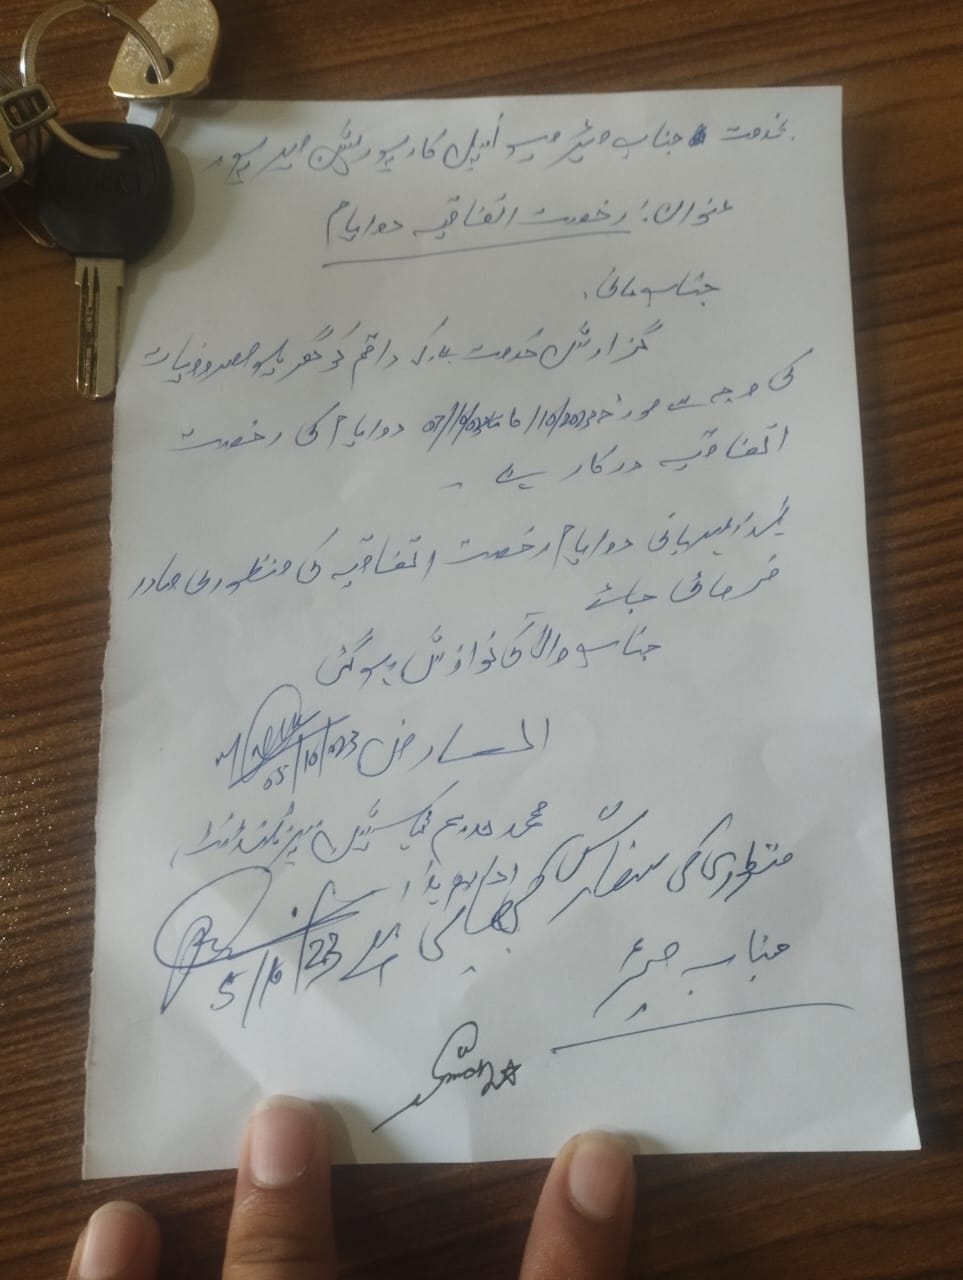 بخدمت جناب میئر میونسپل کارپوریشن میرپور۔
عنوان: رخصت اتفاقیہ دو ایام
جناب عالی!
گزارش خدمت ہے کہ راقم کو گھریلو مصروفیات
کی وجہ سے مورخہ دو ایام کی رخصت
اتفاقیہ درکار ہے ۔
براہ مہربانی دو ایام رخصت اتفاقیہ کی منظوری صادر
فرمائی جائے
جناب والا کی نوازش ہو گئی
العارض 05/10/023
محمد ندیم
منظوری کی سفارش کی جاتی ہے 5/10/23
جناب میئر